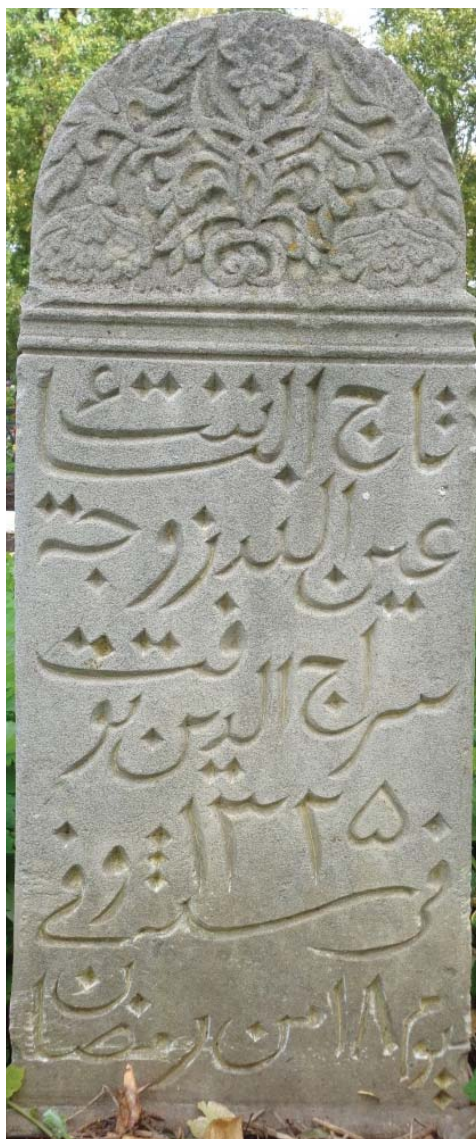 تاج النساء بنت
عين الدين زوجة
سراج الدين توفت
في سنة ١٣٢٥ وفي
يوم ١٨ من رمضان